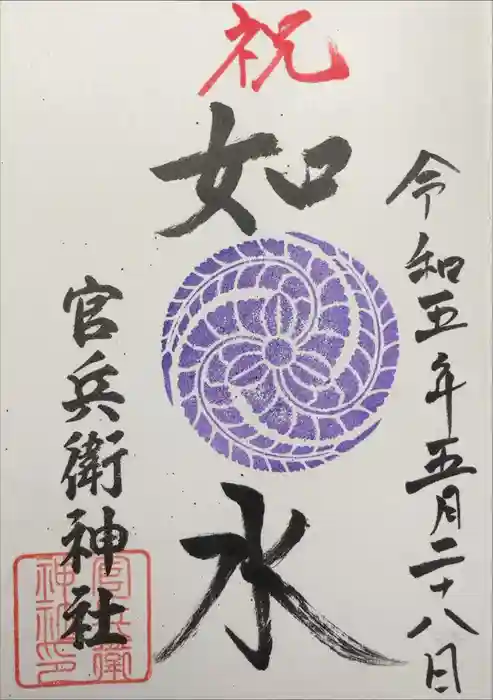 祝
令和五年五月二十八日
如水
官兵衛神社
官兵衛
神社印